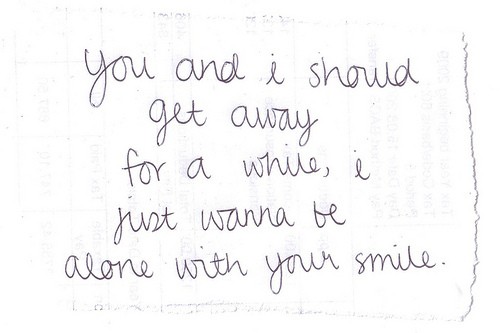 you and i should
get away
for a while, i
just wanna be
alone with your smile.